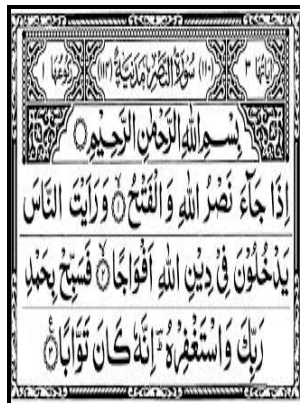 اٰیَاتُهَا ٣ (١١٠) سُوْرَةُ النَّصْرِ مَدَنِیَّةٌ (١١٤) رُكُوْعُهَا ١
بِسْمِ اللهِ الرَّحْمٰنِ الرَّحِیْمِ
اِذَا جَآءَ نَصْرُ اللهِ وَالْفَتْحُ ۙ۝١ وَرَاَیْتَ النَّاسَ
یَدْخُلُوْنَ فِیْ دِیْنِ اللهِ اَفْوَاجًا ۙ۝٢ فَسَبِّحْ بِحَمْدِ
رَبِّكَ وَاسْتَغْفِرْهُ ؔؕ اِنَّهٗ كَانَ تَوَّابًا ۝٣